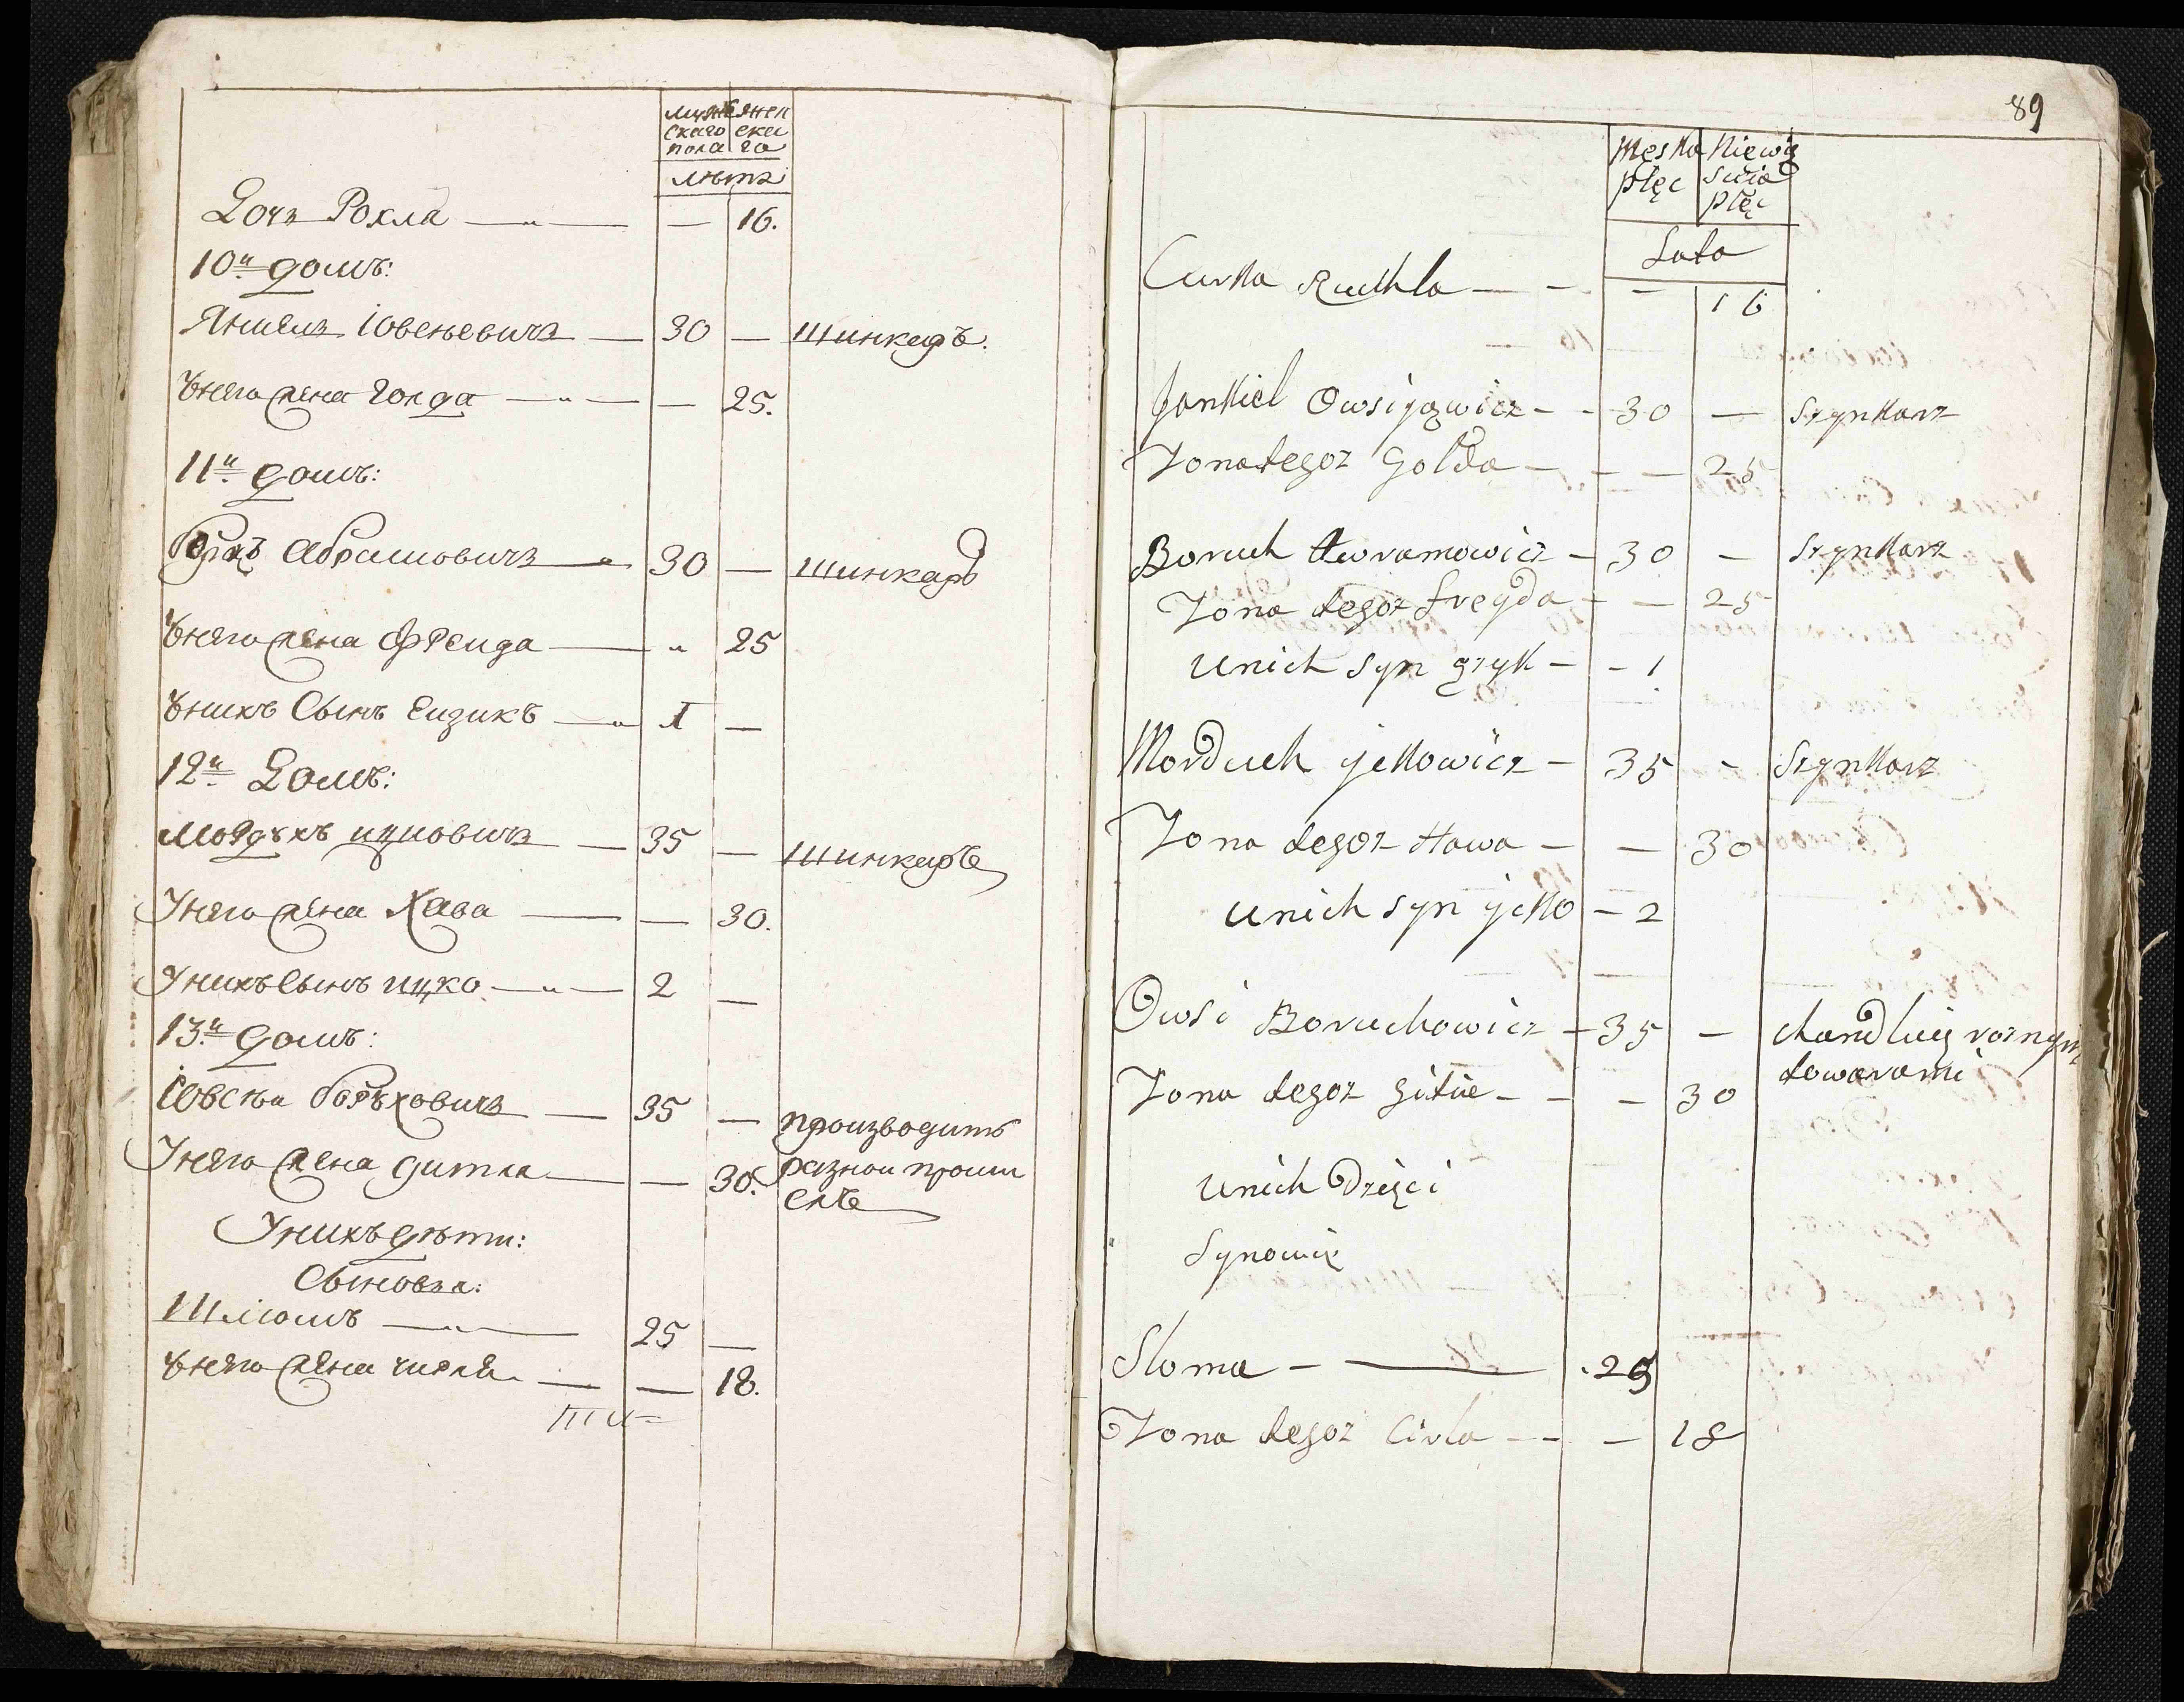 мужескаго пола
женскаго
лѣтъ
Дочь Рохля — — 16.
10й домъ:
Янкель Іовсѣевичъ — 30 — шинкаръ.
Ънего жена Голда — — 25.
11й домъ:
Абрамовичъ — 30 — шинкаръ
Ънего жена Фреида — „ 25
Ънихъ Сынъ Еизикъ — 1 —
12й Домъ:
Мордъхъ ицковичъ — 35 — шинкаръ
Унего жена Хава — — 30.
Унихъ Сынъ ицко — 2 —
13й домъ:
Іовсѣи боръховичъ — 35 — производитъ
Унего жена Гитля — — 30. разнои промы
слъ
Унихъ дѣти:
Сыновья:
Шліомъ — 25 —
Ънего жена Цирля — — 18.
89
Męska płęc
Niewia scia płęc
Lata
Curka Ruchla — — — 16
Jankiel Owsijowicz — 30 — Szynkarz
Zona tegoz Golda — — — 25
Boruch Awramowicz — 30 — Szynkarz
Zona tegoz Freyda — — 25
unich syn Ezyk — - 1
Morduch jckowicz — 35 - Szynkarz
Zona tegoz Hawa — — 30
unich syn jcko — 2
Owsi Boruchowicz — 35 — chandluię roznym
towarami
Zona tegoz Gitlie — — — 30
unich Dzięci
Synowię
Sloma — — 25
Zona tegoz Cirla — — — 18